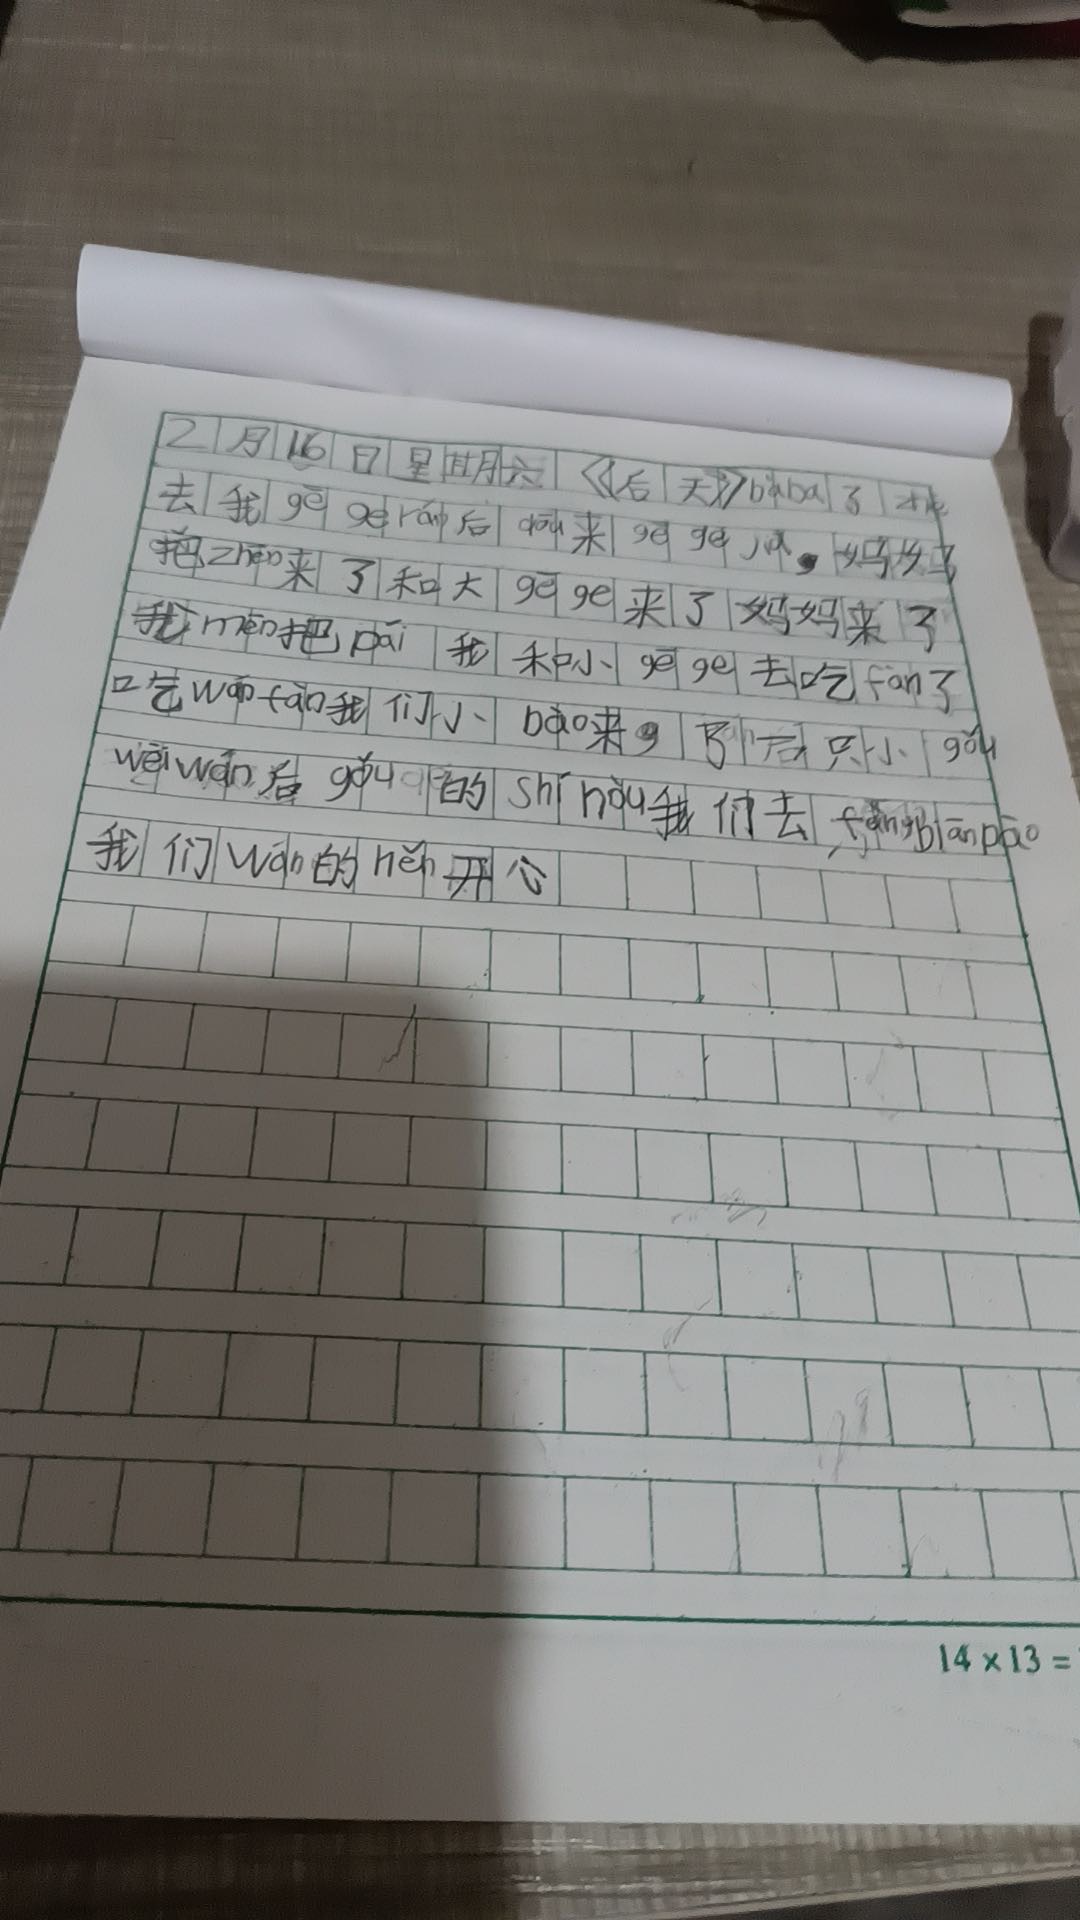 2月16日星期六《后天》bàba了
去我gēge rán后dōu来gēge jiā,妈妈
把zhēn来了和大gēge来了妈妈来了
我mēn把pái我和小gēge去吃fàn了
吃wǎn fàn我们小bào来 了后只小gǒu
wèi wán 后gǒu的shí hòu我们去fàng Biān pào
我们wán的hěn开心
14×13=